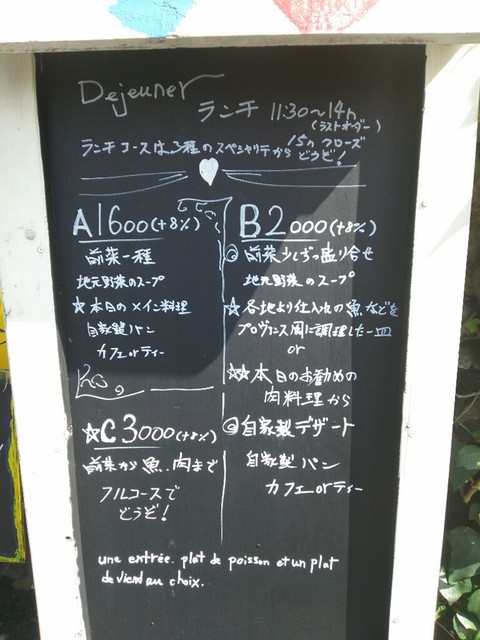 Dejeuner
ランチ 11:30~14h
(ラストオーダー)
15h クローズ
ランチコースは3種のスペシャリテから どうぞ!
A1600(+8%)
前菜一種
地元野菜のスープ
☆本日のメイン料理
自家製パン
カフェorティー
B2000(+8%)
◎前菜少しずつ盛り合せ
地元野菜のスープ
☆各地より仕入れの魚などを
プロヴァンス風に調理した一皿
or
☆☆本日のお勧めの
肉料理から
◎自家製デザート
自家製パン
カフェorティー
☆C3000(+8%)
前菜から魚、肉まで
フルコースで
どうぞ!
une entrée. plat de poisson et un plat
de viend au choix.